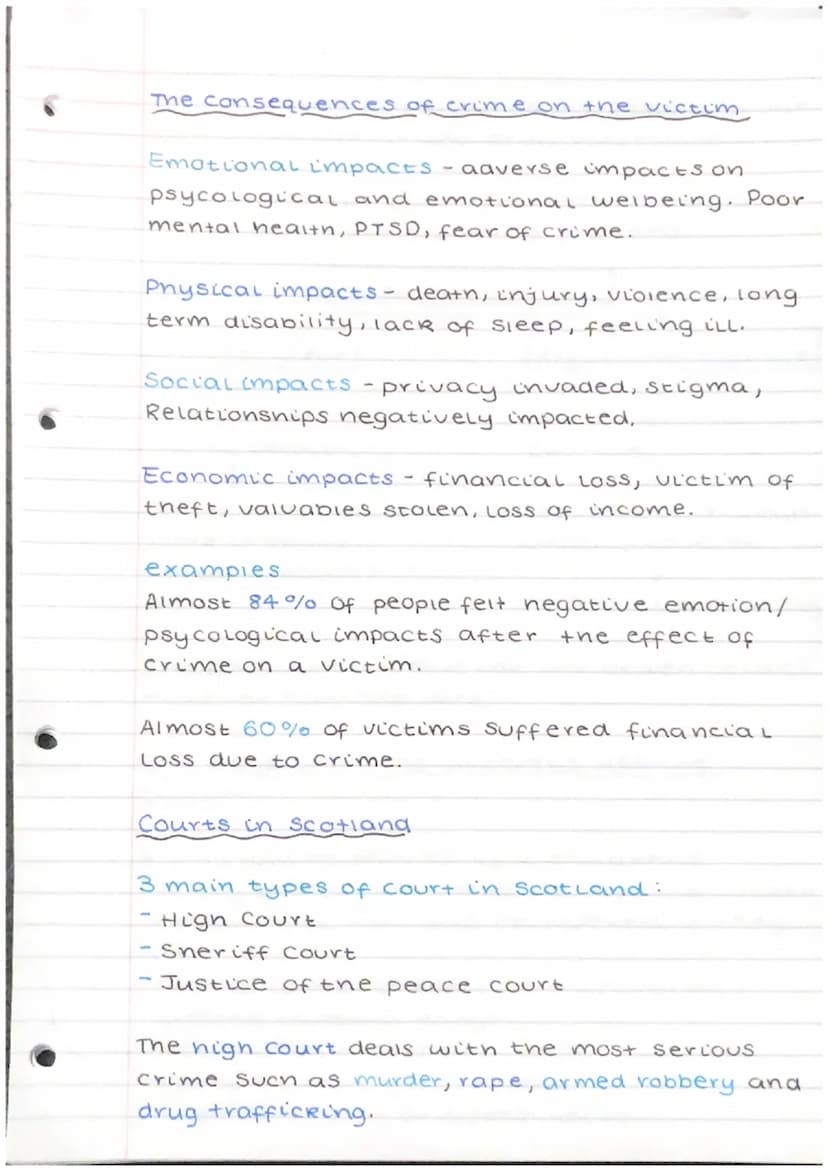 The consequences of crime on the victim
Emotional impacts - adverse impacts on
psycological and emotional welbeing. Poor
mental health, PTSD, fear of crime.
Physical impacts - death, injury, violence, long
term disability, lack of sleep, feeling ill.
Social impacts - privacy invaded, stigma,
Relationships negatively impacted.
Economic impacts - financial loss, victim of
theft, valuables stolen, loss of income.
examples
Almost 84% of people felt negative emotion/
psycological impacts after the effect of
crime on a victim.
Almost 60% of victims suffered financial
Loss due to crime.
Courts in Scotland
3 main types of court in Scotland:
- High Court
- Sheriff Court
- Justice of the peace court
The high court deals with the most serious
crime such as murder, rape, armed robbery and
drug trafficking.